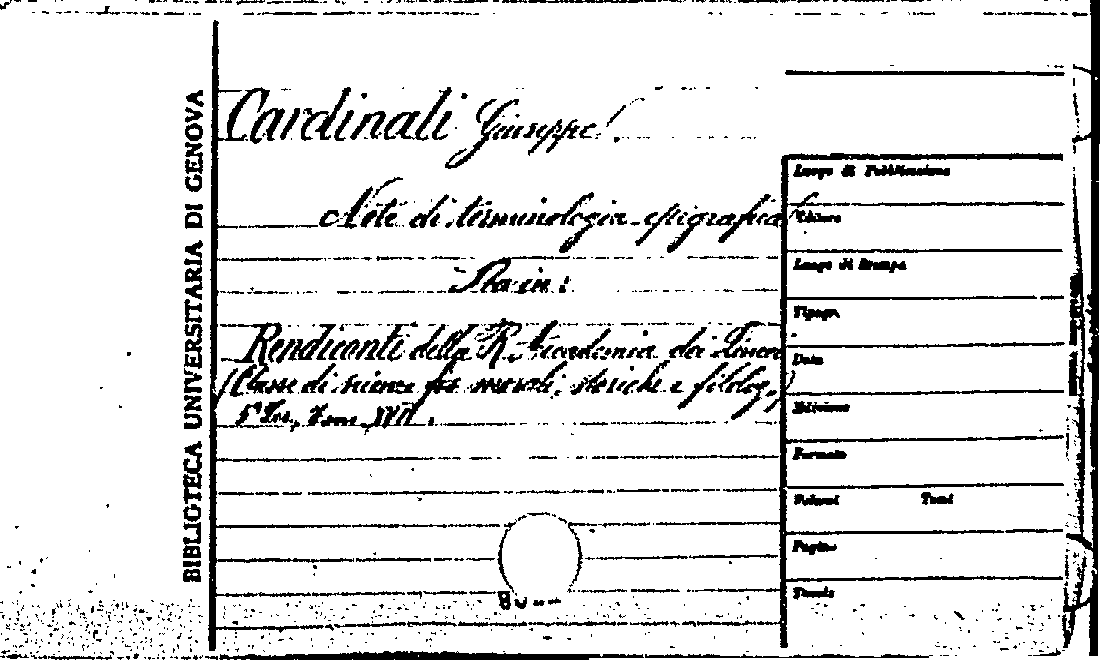 BIBLIOTECA UNIVERSITARIA DI GENOVA
Cardinali Giuseppe.
Note di terminologia epigrafica
Sta in:
Rendiconti della R. Accademia dei Lincei
(Classe di scienze morali, storiche e filolog.)
5ª Ser., Tomo XVII.
Luogo di Pubblicazione
Editore
Luogo di Stampa
Tipogr.
Data
Edizione
Formato
Volumi Tomi
Pagine
Tavole